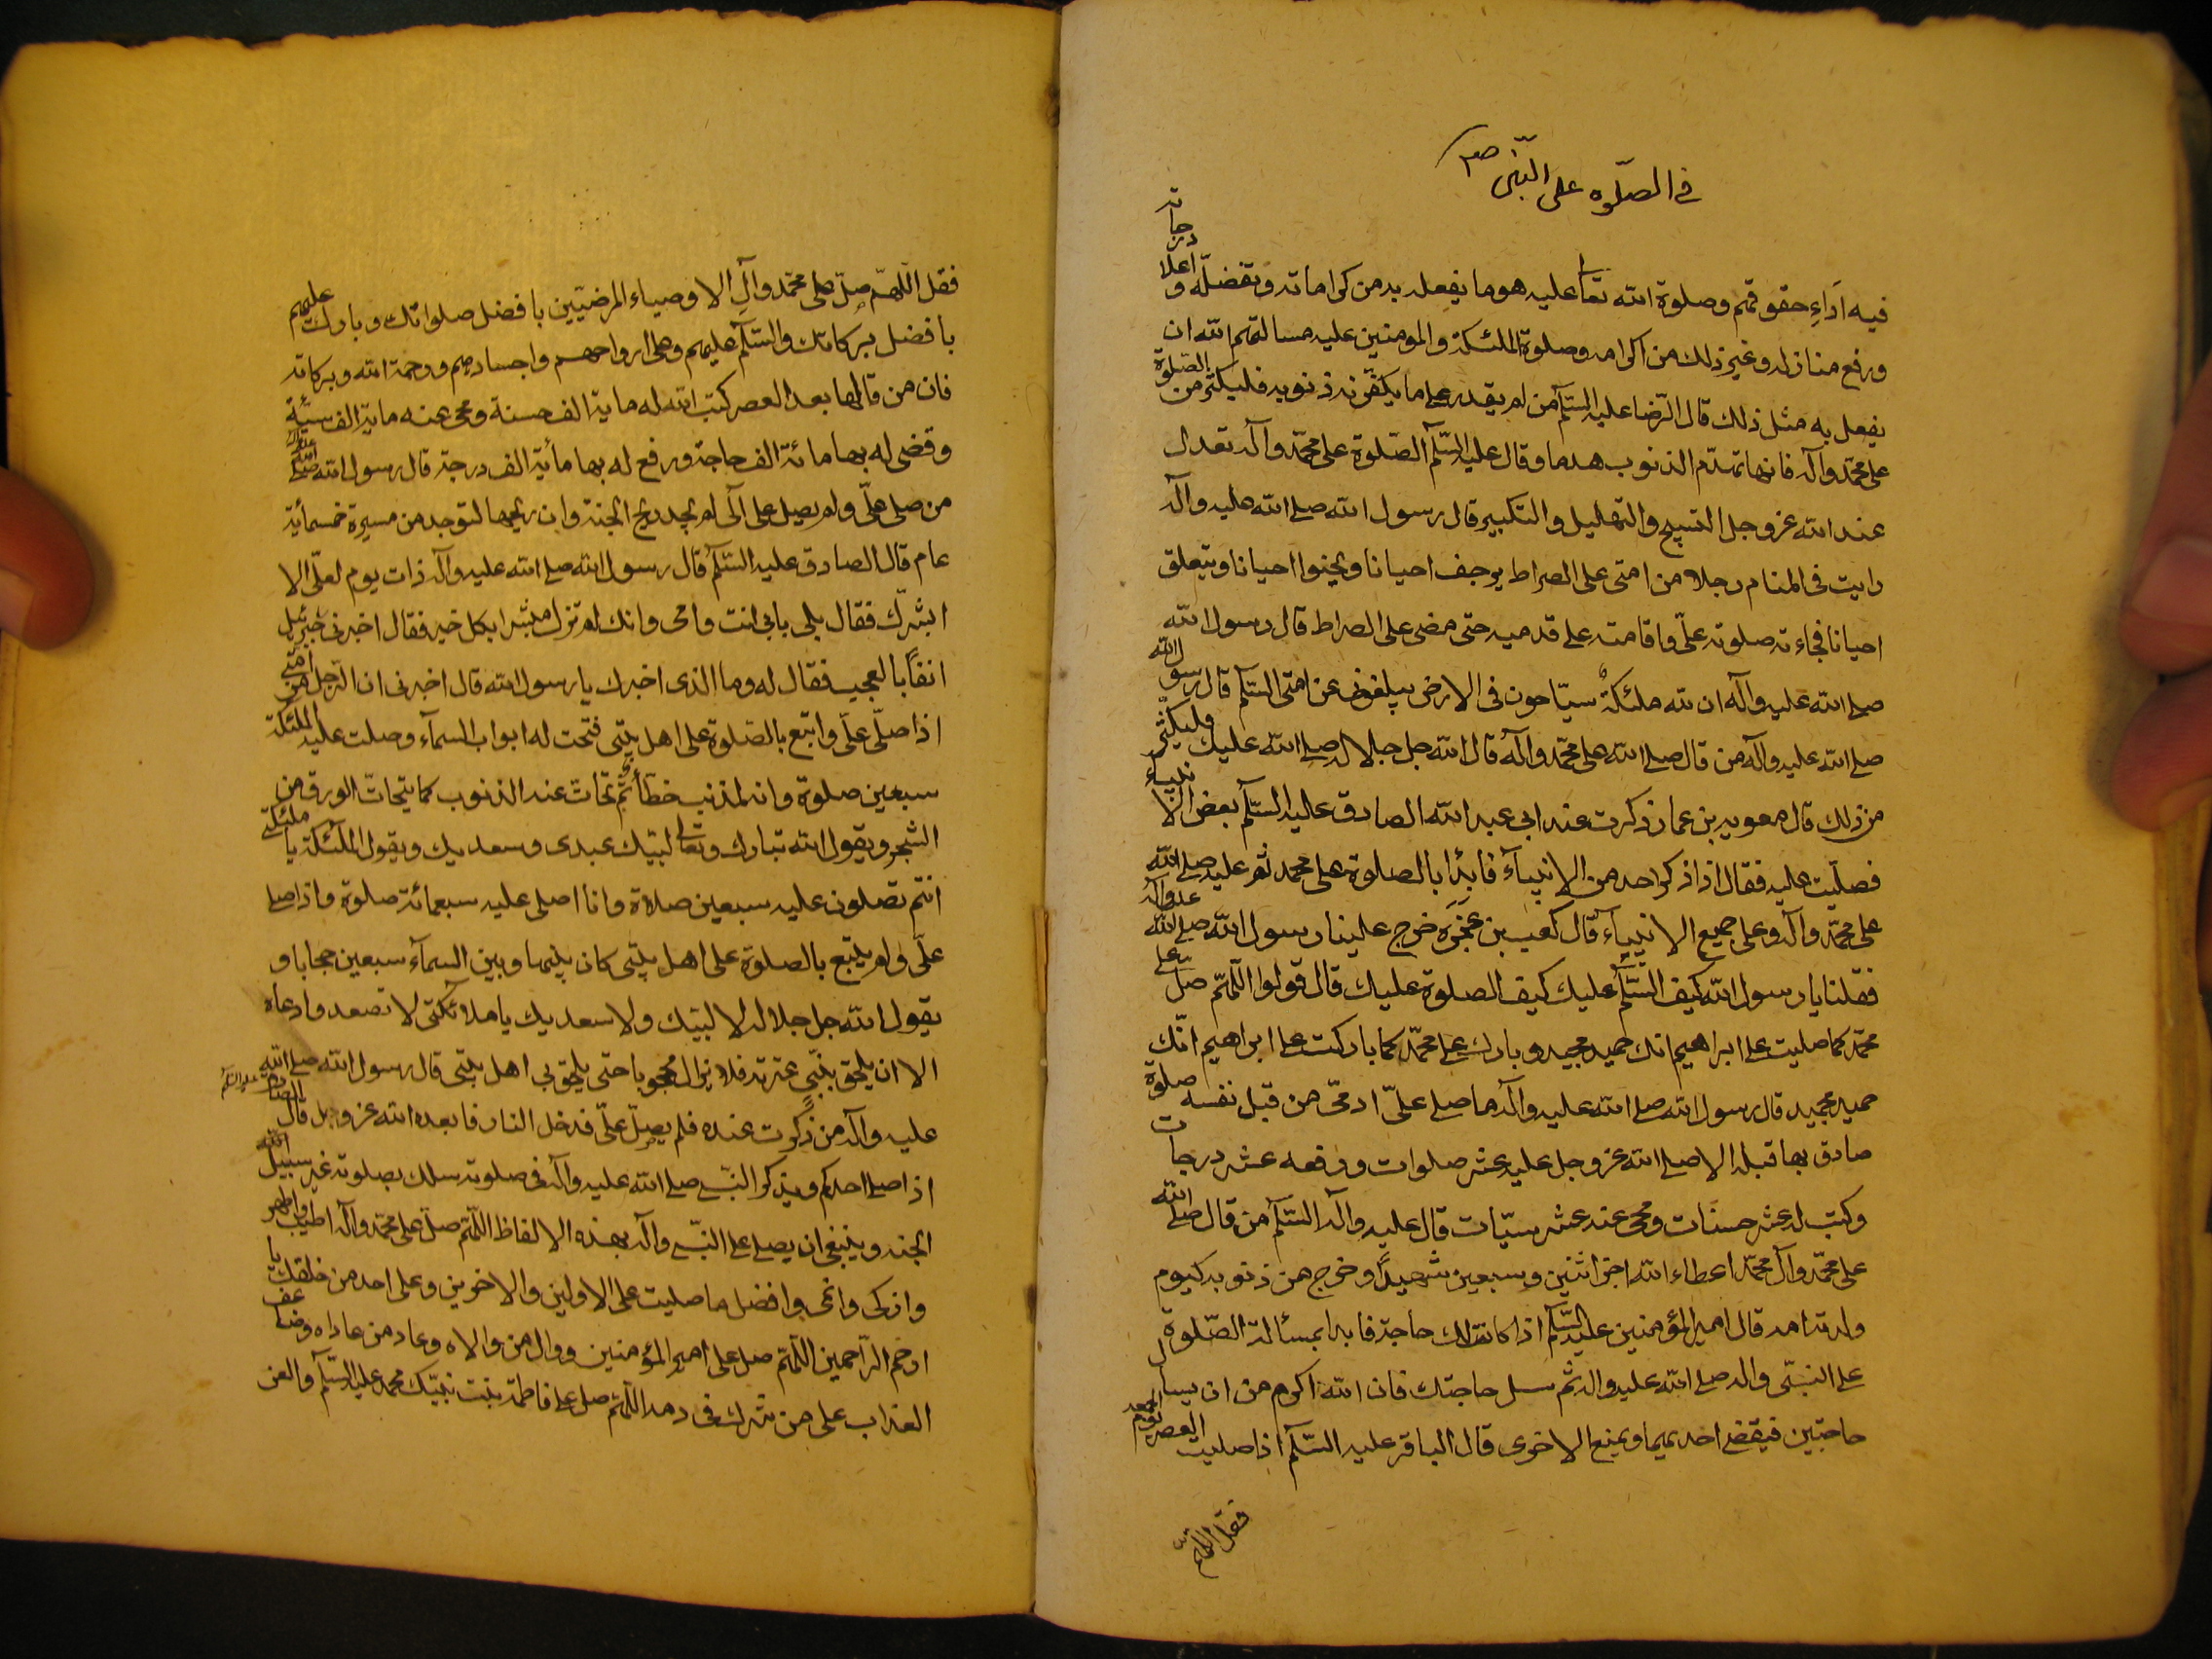 في الصلوه على النبي صم
فيه اَداءِ حقوقهم وصلوة الله تعا عليه هو ما يفعله به من كراماته وتفضله و اعلا درجاته
ورفع منازله وغير ذلك من اكرامه وصلوة الملئكة والمومنين عليه مسالتهم الله ان
يفعل به مثل ذلك قال الرّضا عليه السّلم من لم يقدر على ما يكفّر به ذنوبه فليكثر من الصلوة
على محمّد وآله فانها تهدم الذنوب هدما وقال عليه السّلم الصّلوة على محمّد وآله تعدل
عند الله عز وجل التسبيح والتهليل والتكبير قال رسول الله صلى الله عليه وآله
رايت في المنام رجلا من امتى على الصراط يرجف احيانا ويحبوا احيانا ويتعلق
احيانا فجاءته صلوته علىّ واقامته على قدميه حتى مضى على الصراط قال رسول الله
صلى الله عليه وآله ان لله ملئكةً سيّاحون فى الارض يبلغون عن امتى السّلم قال رسول الله
صلى الله عليه وآله من قال صلى الله على محمّد وآله قال الله جل جلاله صلى الله عليك فليكثر
من ذلك قال معويه بن عمار ذكرت عند ابى عبد الله الصادق عليه السّلم بعض الانبياء
فصليت عليه فقال اذا ذكر احد من الانبيآء فابدا بالصلوة على محمد ثم عليه صلى الله
على محمّد وآله وعلى جميع الانبيآء قال كعب بن عجزَه خرج علينا رسول الله صلى الله عليه وآله
فقلنا يا رسول الله كيف السّلم عليك كيف الصلوة عليك قال قولوا اللّهمّ صلّ على
محمّد كما صليت على ابراهيم انك حميد مجيد وبارك على محمّد كما باركت على ابراهيم انّك
حميد مجيد قال رسول الله صلى الله عليه وآله ما صلى علىّ ادمّى من قبل نفسه صلوة
صادق بها قبله الا صلى الله عز وجل عليه عشر صلوات ورفعه عشر درجات
وكتب له عشر حسنات ومحى عنه عشر سيّات قال عليه وآله السّلم من قال صلى الله
على محمّد وآل محمّد اعطاء الله اجر اثنين وسبعين شهيدًا وخرج من ذنوبه كيوم
ولدته امه قال امير المؤمنين عليه السّلم اذا كانت لك حاجة فابدا بمسألة الصّلوة
على النبّى واله صلى الله عليه واله ثم سل حاجتك فان الله اكرم من ان يسال
حاجتين فيقضى احديهما ويمنع الاخرى قال الباقر عليه السّلم اذا صليت العصر يوم الجمعه
فقل اللهم
فقل اللّهمّ صلّ على محمّد وآلِ الاوصياء المرضيّين بافضل صلواتك وبارك عليهم
بافضل بركاتك والسّلم عليهم وعلى ارواحهم واجسادهم ورحمة الله وبركاته
فان من قالها بعد العصر كتب الله له ماية الف حسنة ومحى عنه ماية الف سيّئة
وقضى له بها مائة الف حاجة ورفع له بها مأية الف درجة قال رسول الله صلى الله عليه وآله
من صلى علىّ ولم يصل على آلى لم يجد ريح الجنة وان ريحها لتوجد من مسيرة خمسمأية
عام قال الصادق عليه السّلم قال رسول الله صلى الله عليه وآله ذات يوم لعلّى الا
ابشرّك فقال بلى بابى انت وامى وانك لم تزل مبشرا بكل خير فقال اخبرنى جبرئيل
انفًا بالعجيب فقال له وما الذى اخبرك يا رسول الله قال اخبرنى ان الرّجل من امتى
اذا صلّى علىّ واتبع بالصّلوة على اهل بيتى فتحت له ابواب السمآء وصلت عليه الملئكة
سبعين صلوة وانه لمذنب خطّأ ثم تحات عنه الذنوب كما يتحات الورق من
الشجر ويقول الله تبارك وتعالى لبيّك عبدى وسعديك ويقول الملئكة يا ملئكتى
انتم تصلون عليه سبعين صلاة وانا اصلى عليه سبعمائة صلوة واذا صلى
علىّ ولم يتبع بالصلوة على اهل بيتى كان بينها وبين السمآء سبعين حجابا و
يقول الله جل جلاله لا لبيّك ولا سعديك يا ملائكتى لا تصعدوا دعاه
الا ان يلحق بنبّي عترته فلا يزال محجوبا حتى يلحق بي اهل بيتى قال رسول الله صلى الله
عليه وآله من ذكرت عنده فلم يصلّ علىّ فدخل النار فابعده الله عز وجل قال الصادق عليه السلم
اذا صلى احدكم ويذكر النبّى صلى الله عليه وآله فى صلوته سلك بصلوته غير سبيل الله
الجنه وينبغى ان يصلى على النبّى وآله بهذه الالفاظ اللّهمّ صلّ على محمّد وآله اطيب واطهر
وازكى وانمى وافضل ما صليت على الاولين والاخرين وعلى احد من خلقك يا
ارحم الرّاحمين اللّهمّ صل على امير المؤمنين ووال من والاه وعاد من عاداه وضاعف
العذاب على من شرك فى دمه اللّهمّ صل على فاطمة بنت نبيّك محمد عليه السّلم والعن